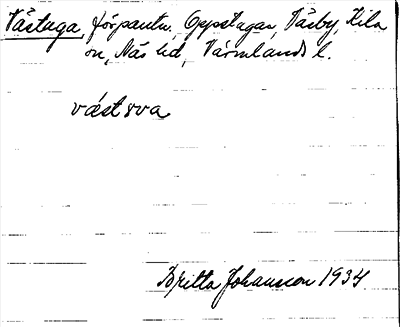 Västaga, förpantn. Oppstagan, Väsby, Kila
sn, Näs hd, Värmlands l.
västrva
Britta Johansson 1934